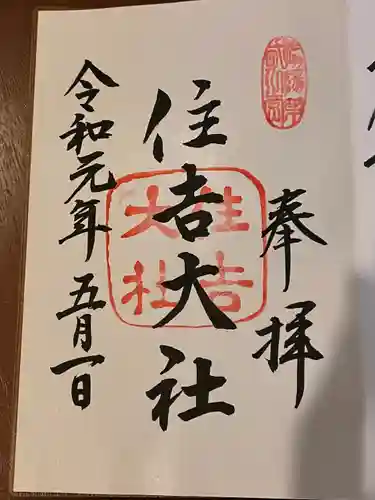 奉拝
住吉大社
令和元年五月一日
住吉
大社